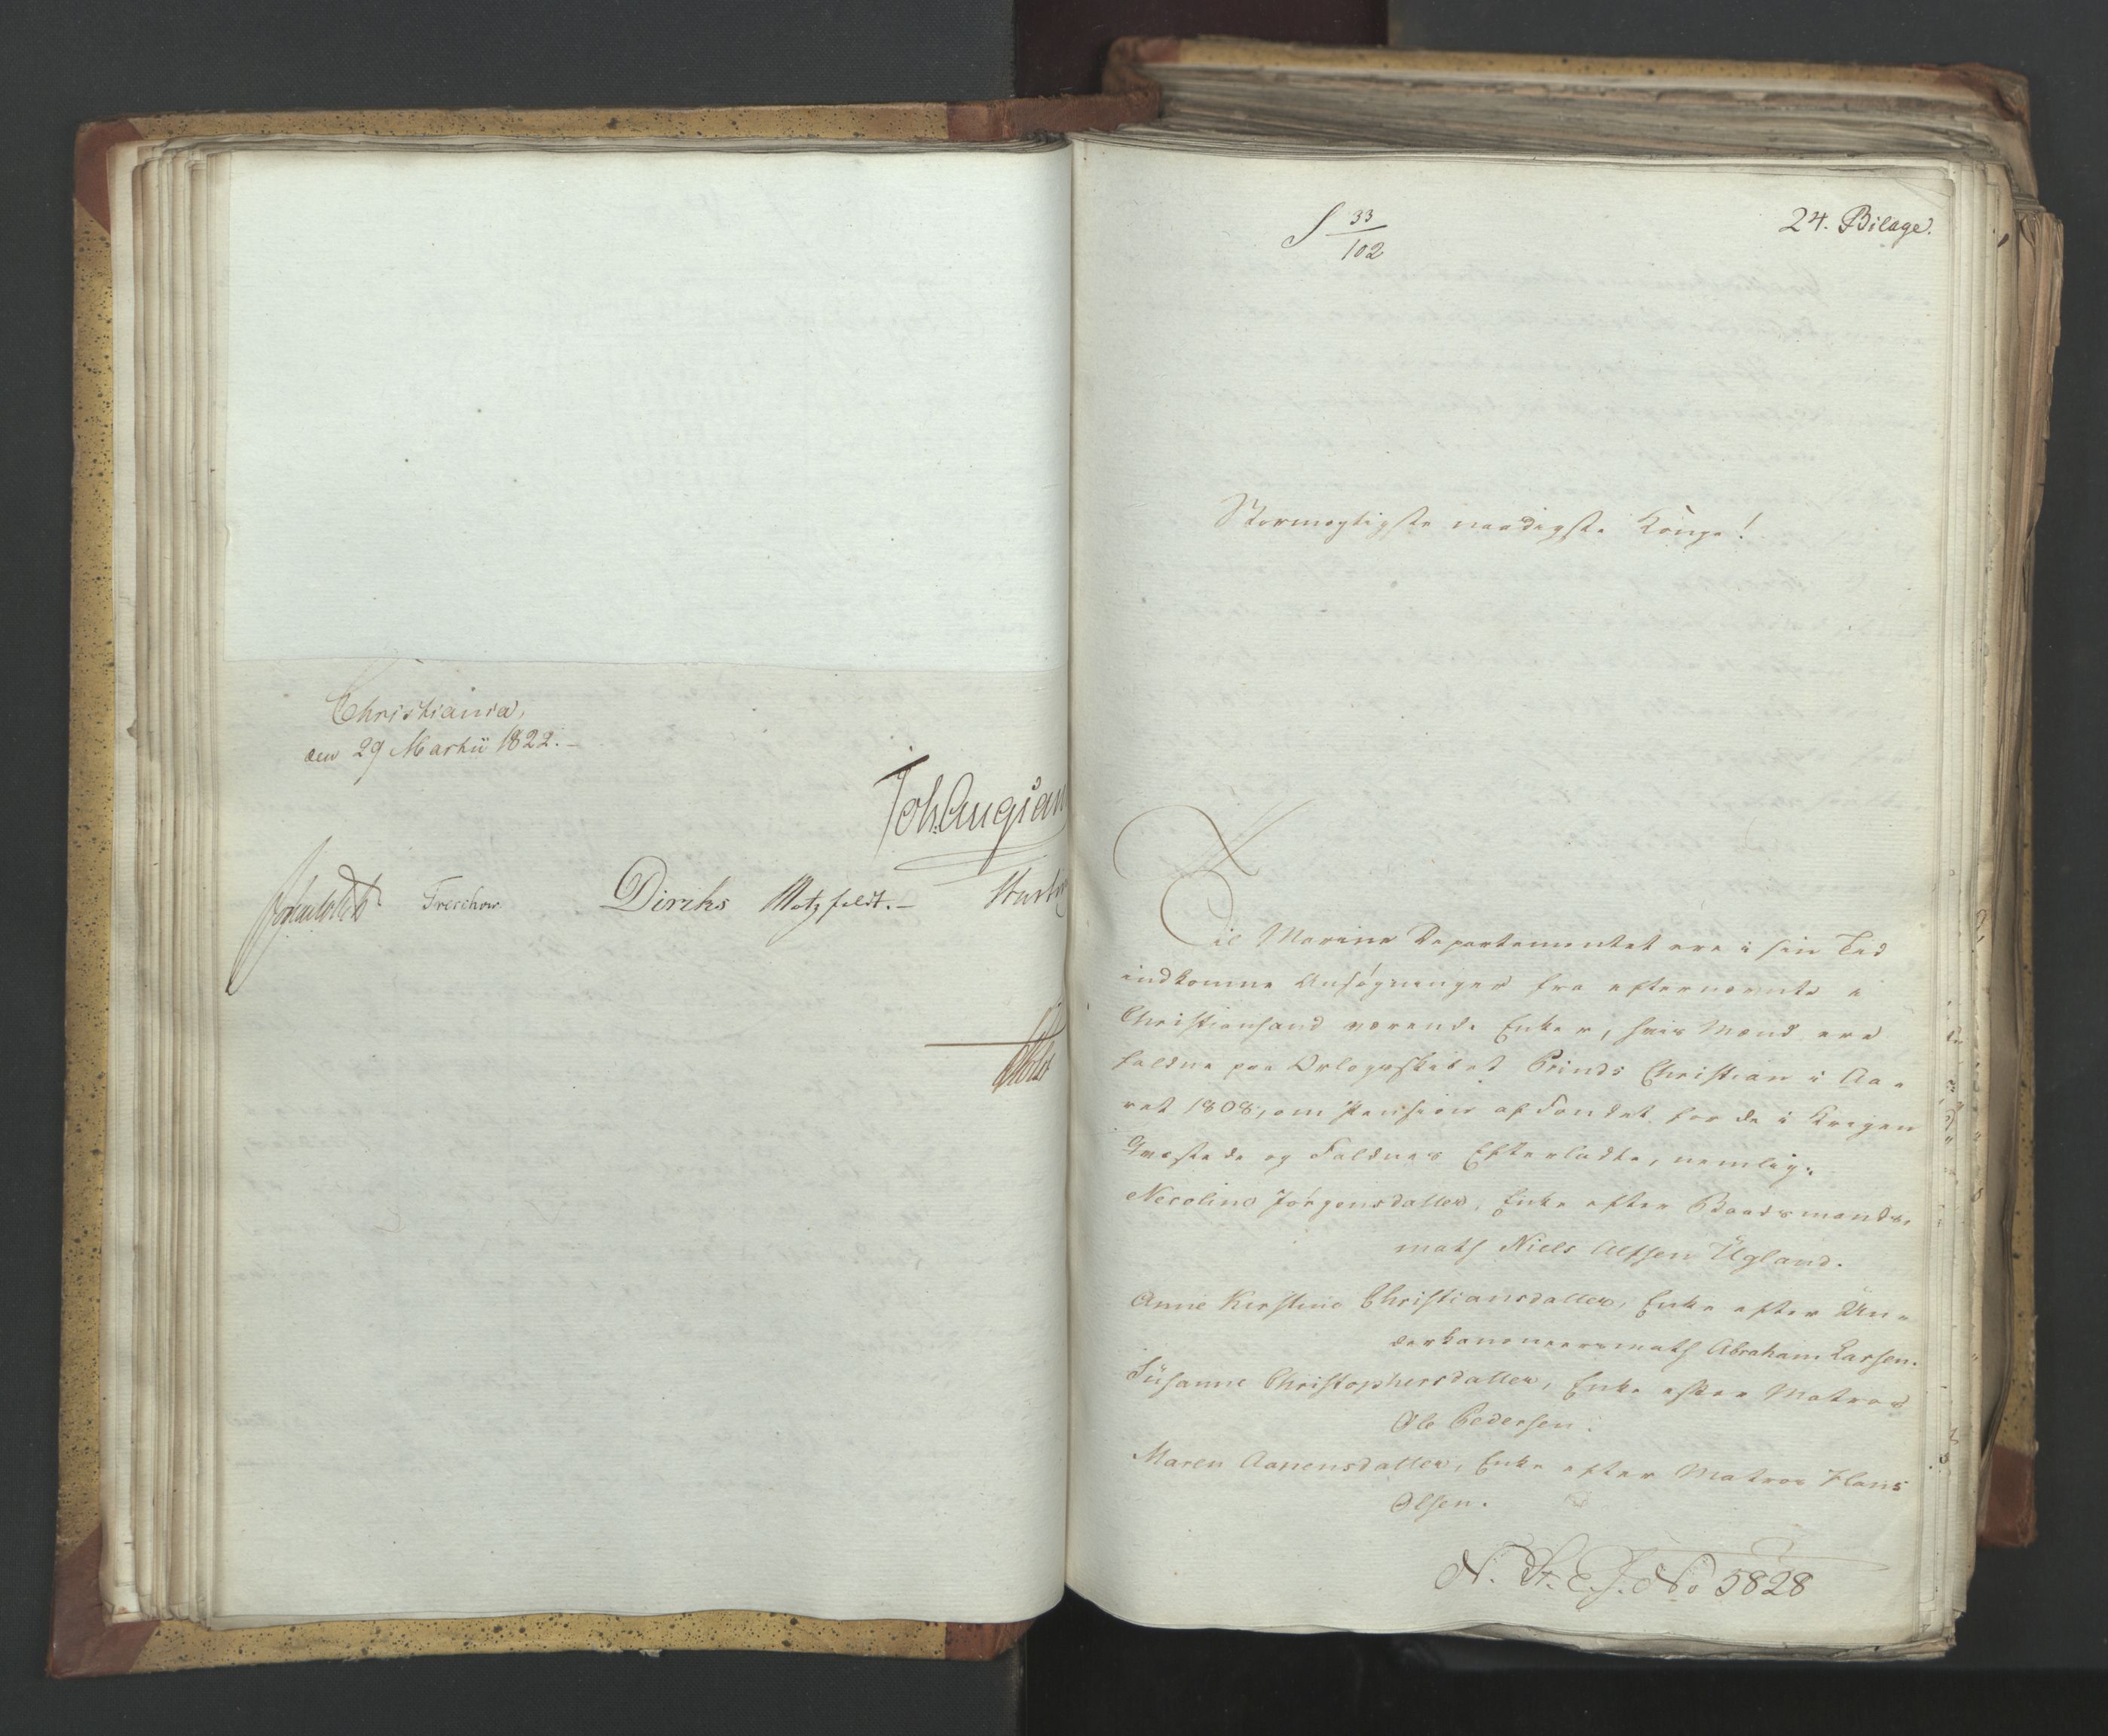 Christiania,
den 29 Martii 1822. –
Joh. Aug: San
Treschow Diriks Motzfeldt. –
S 33/102
24. Bilage.
Stormægtigste naadigste Konge!
Til Marine Departementet ere i sin Tid
indkomne Ansøgninger fra efternævnte i
Christiansand værende Enker, hvis Mænd ere
faldne paa Orlogsskibet Prinds Christian i Aa-
ret 1808, om Pension af Fondet for de i Krigen
Qvæstede og Faldnes Efterladte, nemlig:
Nicoline Jørgensdatter, Enke efter Baadsmands-
math Niels Alfsen Ugland.
Anne Kirstine Christiansdatter, Enke efter Un-
derkanoneersmath Abraham Larsen.
Susanne Christophersdatter, Enke efter Matros
Ole Pedersen.
Maren Aanensdatter, Enke efter Matros Hans
Olsen.
N. St. E. J. No 5828